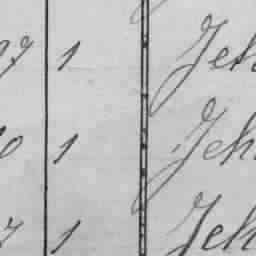 27 1 Jeh
0 1 Jeh
7 1 Jeh